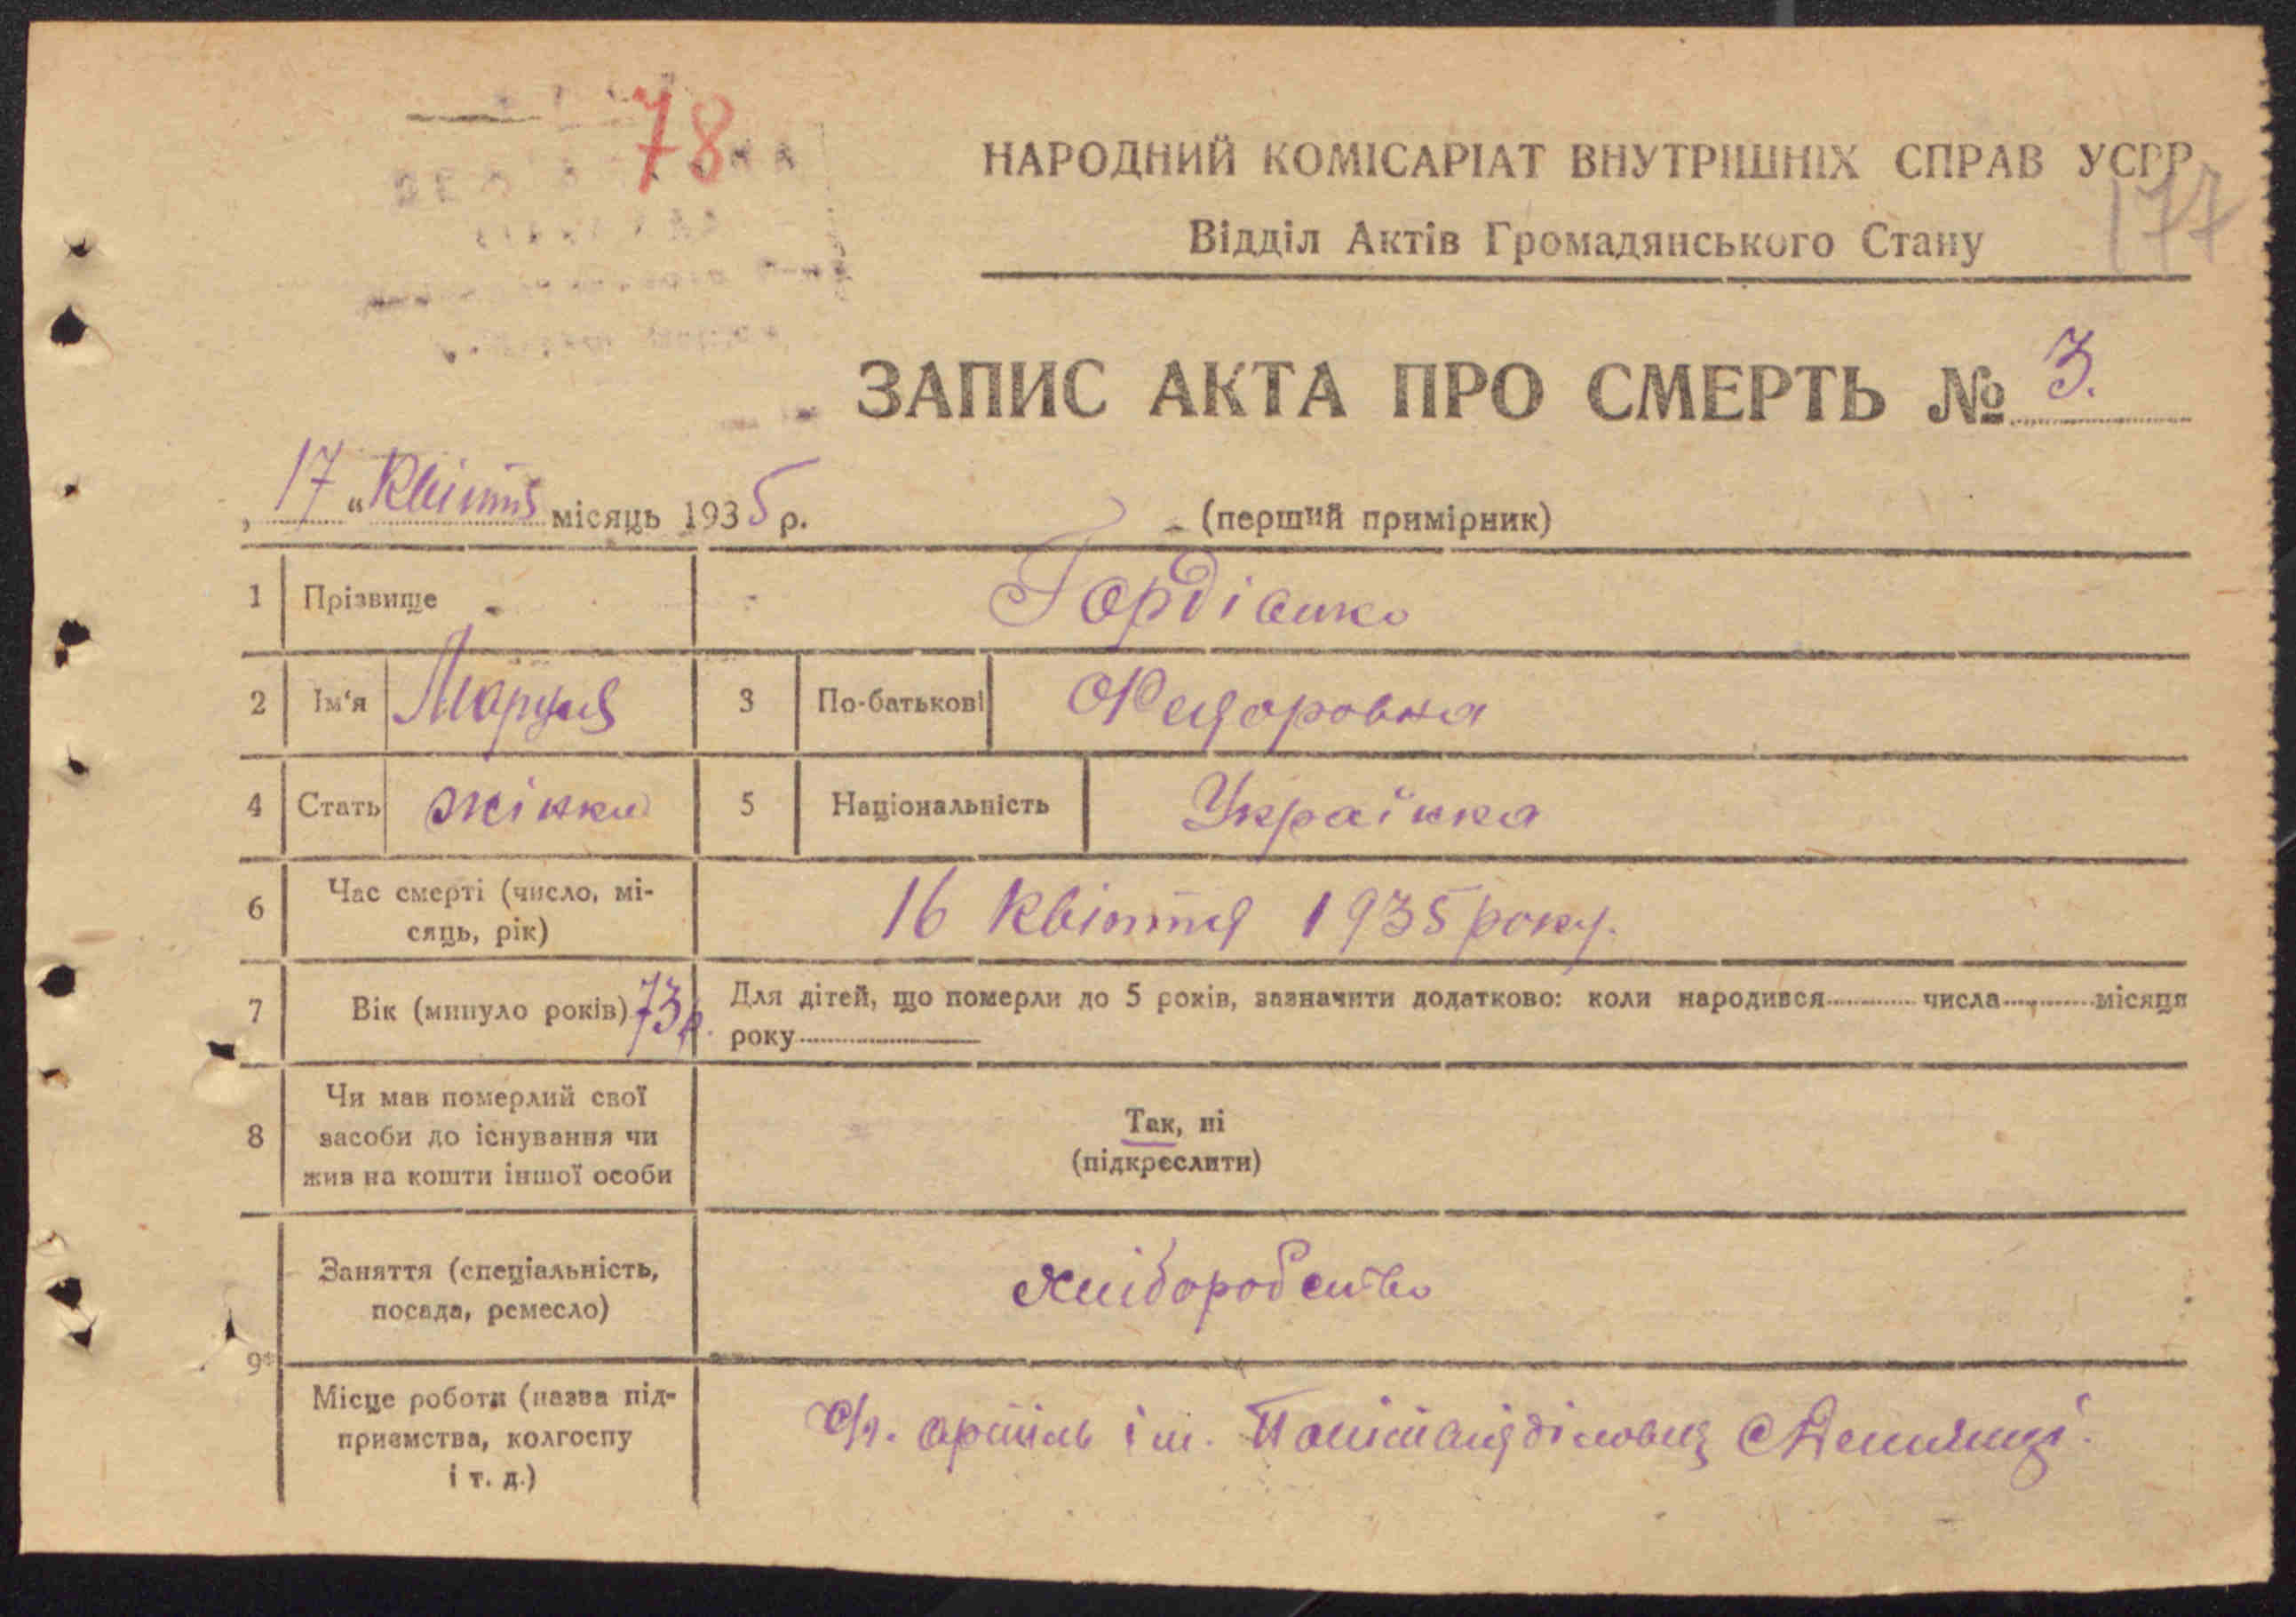 78
НАРОДНИЙ КОМІСАРІАТ ВНУТРІШНІХ СПРАВ УСРР
177
Відділ Актів Громадянського Стану
ЗАПИС АКТА ПРО СМЕРТЬ № 3.
„ 17 “ Квітня місяць 1935 р.
(перший примірник)
1 Прізвище Гордієнко
2 Ім'я Марія 3 По-батькові Федоровна
4 Стать жінки 5 Національність Українка
6 Час смерті (число, мі-
сяць, рік) 16 Квітня 1935 року.
7 Вік (минуло років) 73 р. Для дітей, що померли до 5 років, зазначити додатково: коли народився числа місяця
року
8 Чи мав померлий свої
засоби до існування чи
жив на кошти іншої особи
Так, ні
(підкреслити)
9 Заняття (спеціальність,
посада, ремесло) хліборобство
Місце роботи (назва під-
приємства, колгоспу
і т. д.)
С/г. артіль ім.